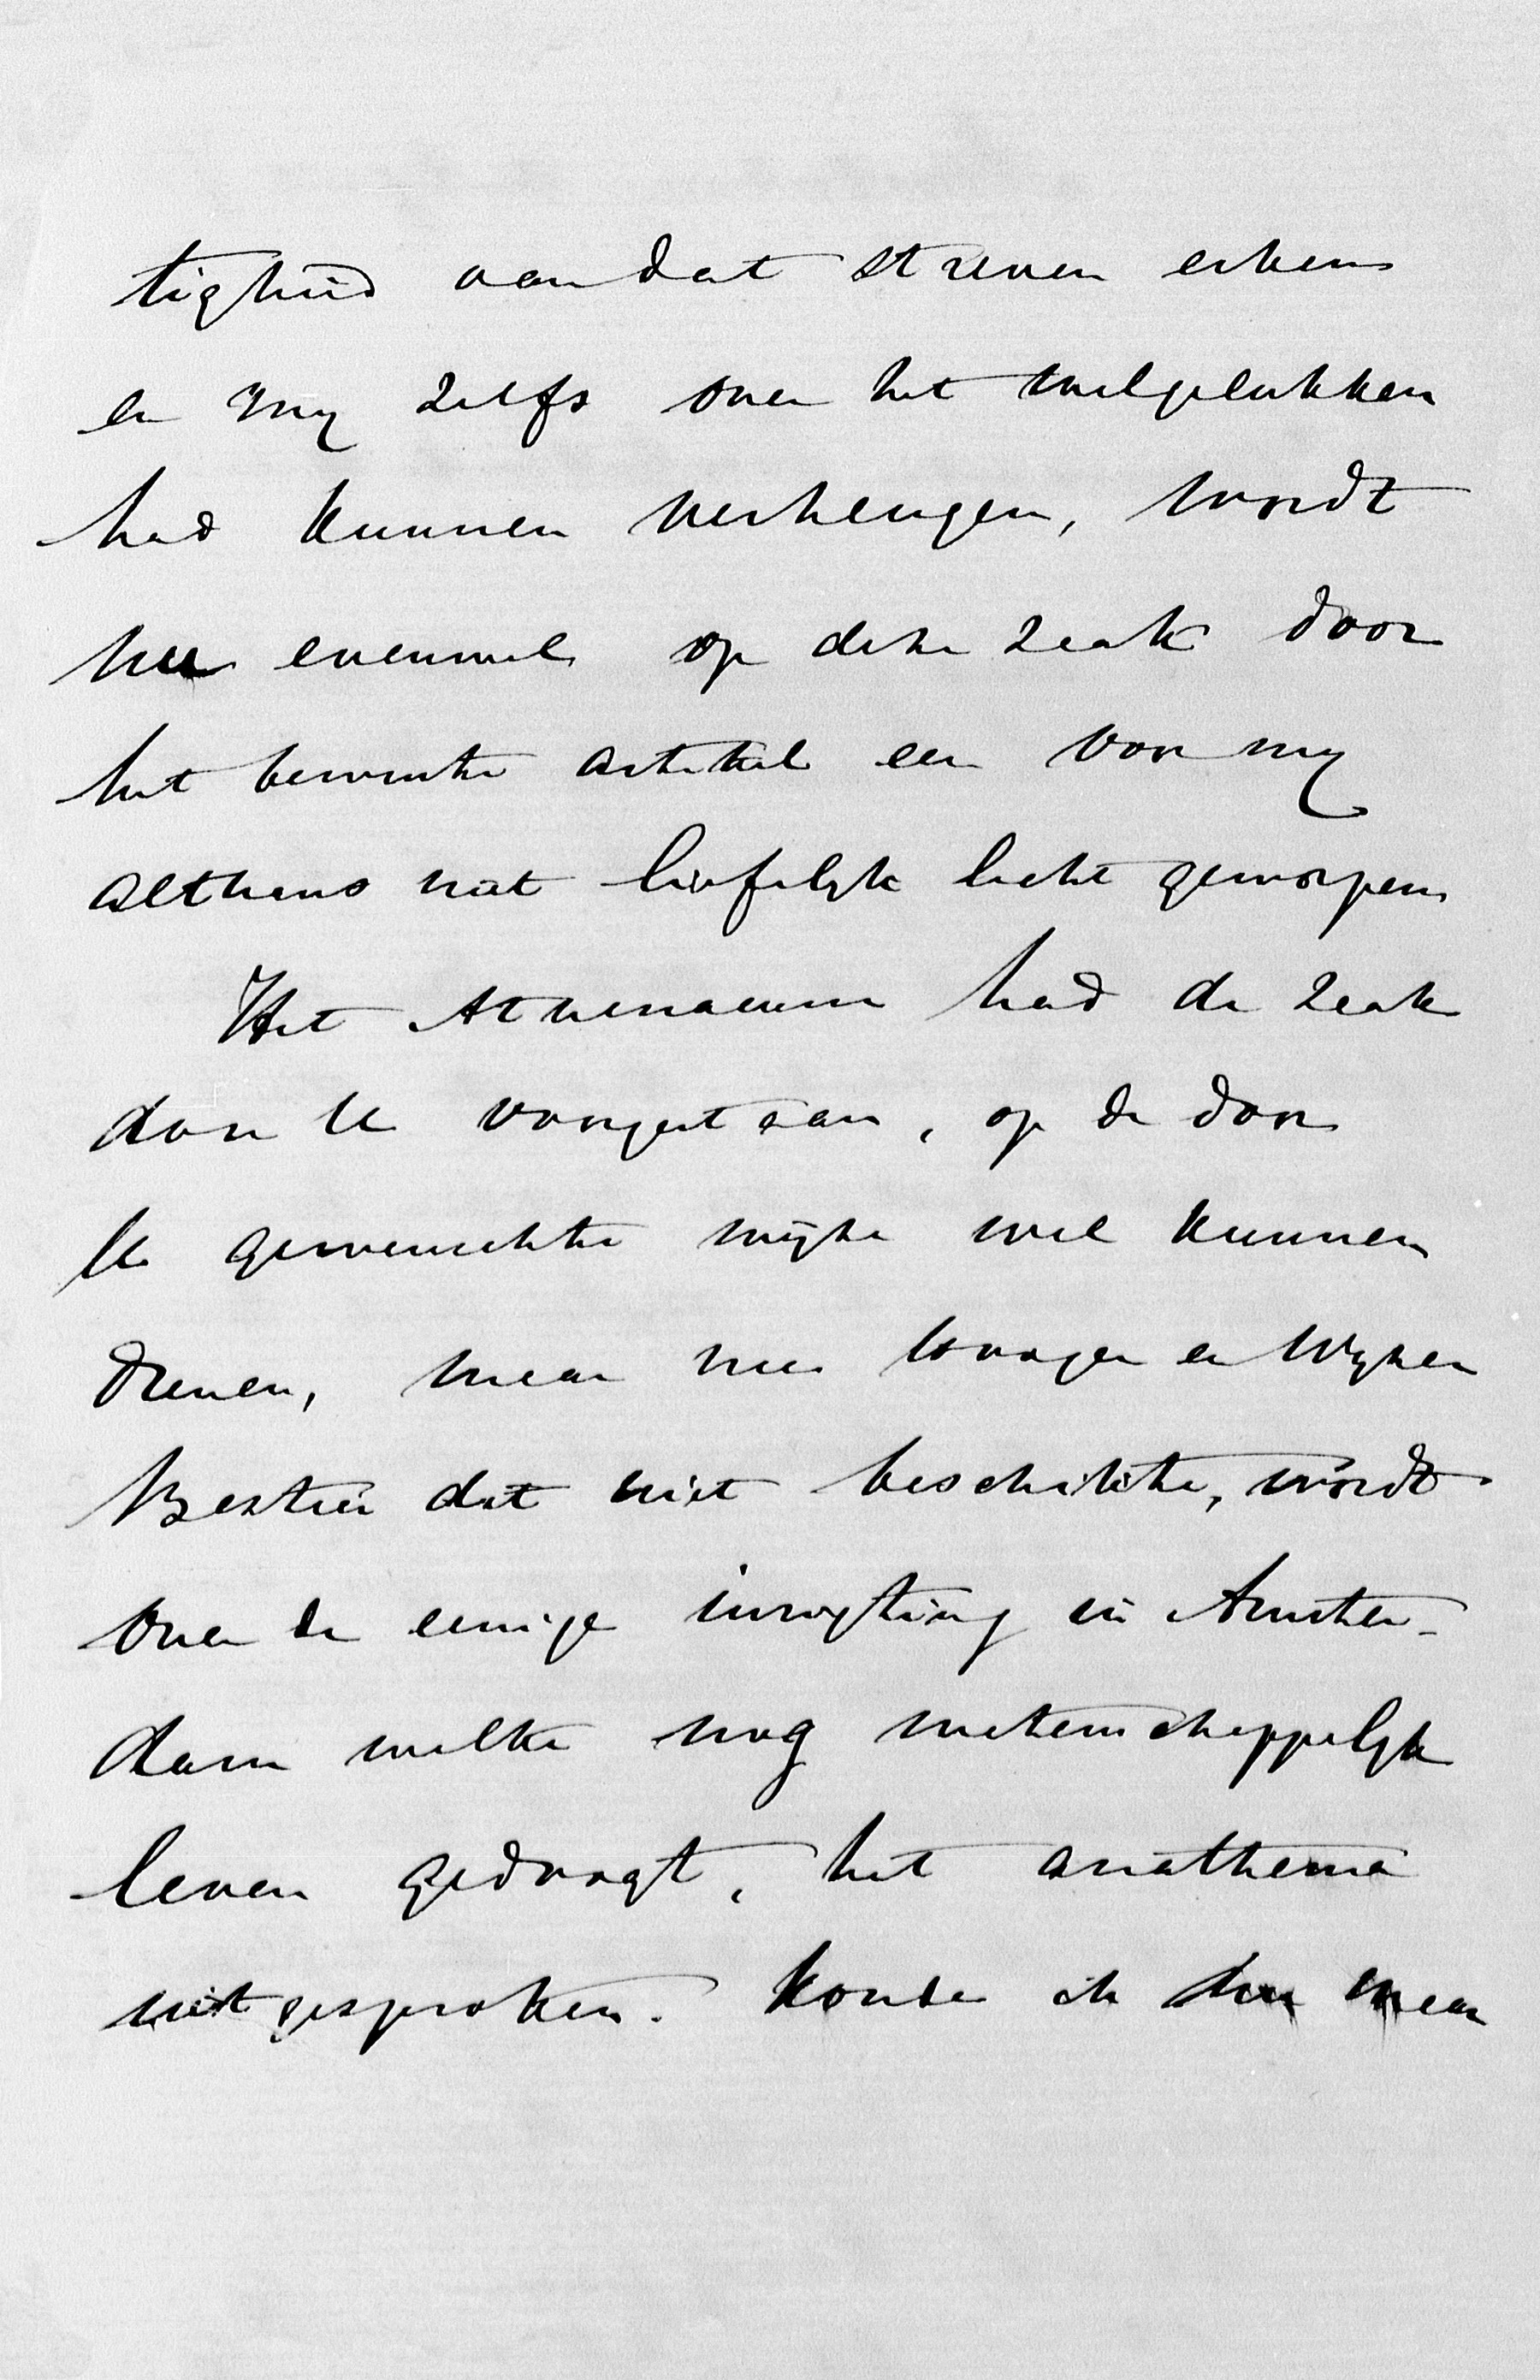 tigheid van dat streven erken
en my zelfs over het welgelukken
had kunnen verheugen, wordt
nu evenwel op deze zaak door
het bewuste artikel een voor my
althans niet liefelyk licht geworpen
Het Athenaeum had de zaak
door U voorgestaan, op de door
U gewenschte wijze wel kunnen
dienen, maar nu Hooger en Wyzer
Bestier dat niet beschikte, wordt
over de eenige inrigting in Amster-
dam welke nog wetenschappelyk
leven gedoogt, het anathema
uitgesproken. Konde ik nu maar